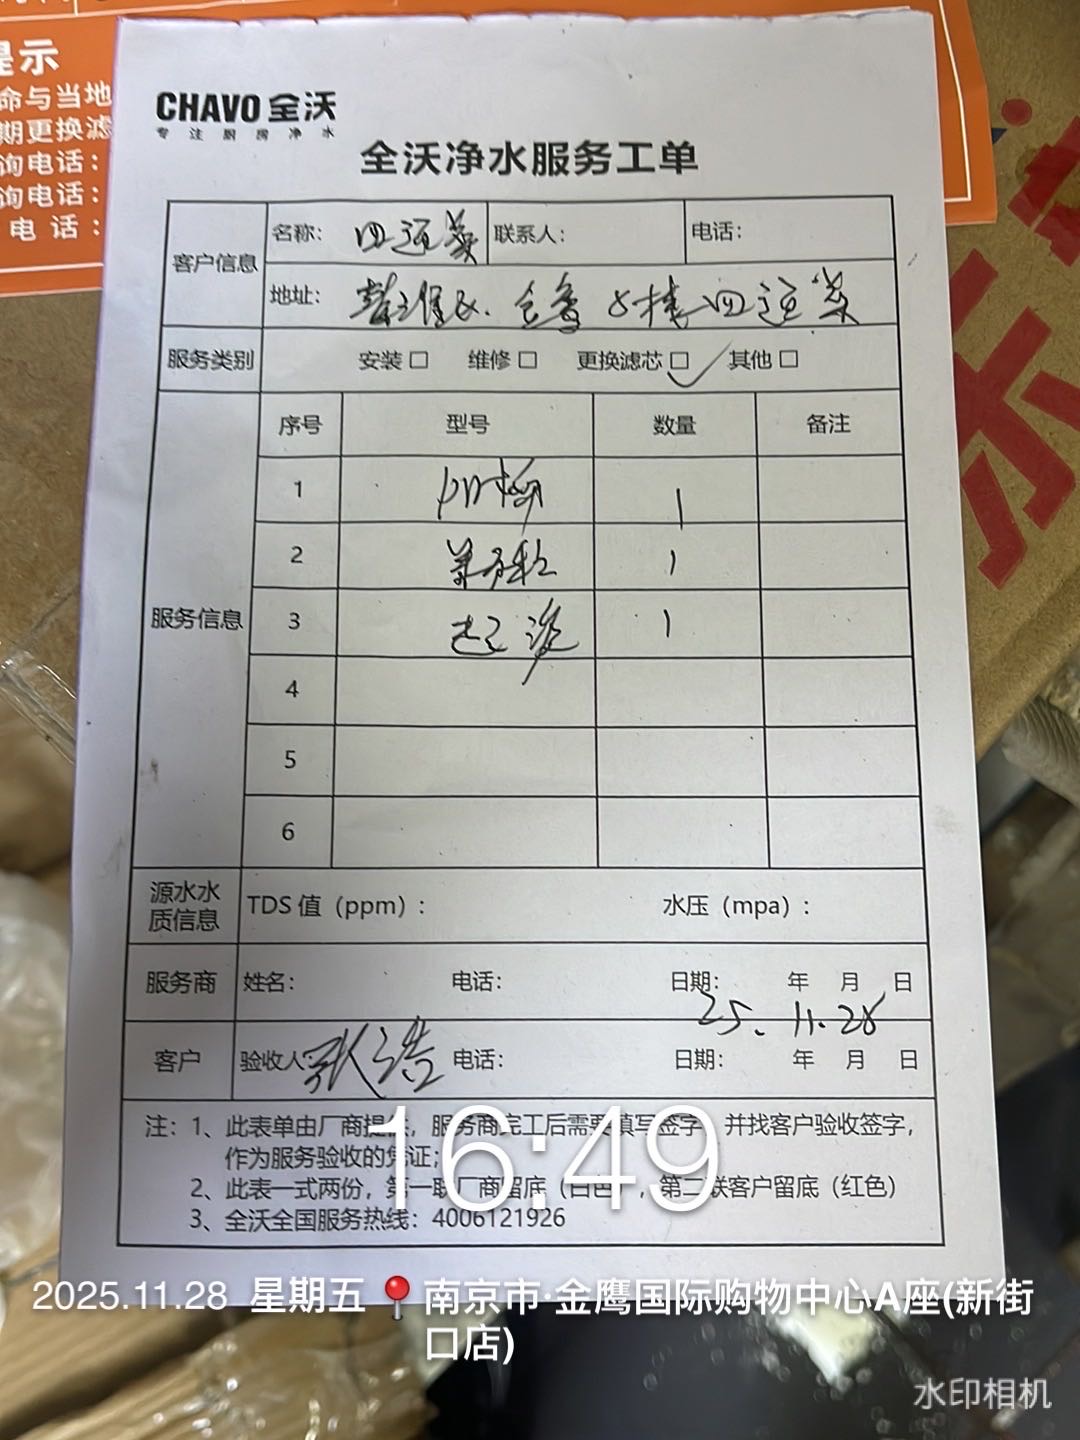 提示
命与当地
期更换滤
询电话：
询电话：
电话：
CHAVO 全沃
专注厨房净水
全沃净水服务工单
客户信息 名称： 联系人： 电话：
地址：
服务类别 安装□ 维修□ 更换滤芯□ 其他□
服务信息 序号 型号 数量 备注
1 1
2 1
3 1
4
5
6
源水水质信息 TDS 值（ppm）： 水压（mpa）：
服务商 姓名： 电话： 日期： 年 月 日
25. 11. 28
客户 验收人 张浩 电话： 日期： 年 月 日
注：1、此表单由厂商提供，服务商完工后需要填写签字，并找客户验收签字，
作为服务验收的凭证；
2、此表一式两份，第一联厂商留底（白色），第二联客户留底（红色）
3、全沃全国服务热线：4006121926
16:49
2025.11.28 星期五 南京市·金鹰国际购物中心A座(新街
口店)
水印相机